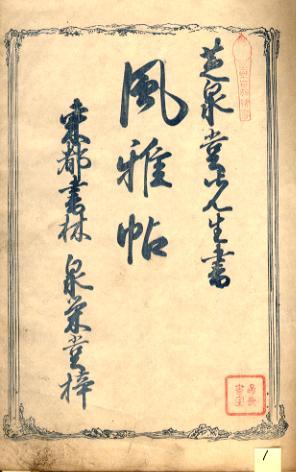 芝泉堂先生書
風雅帖
東都書林 泉栄堂梓
1